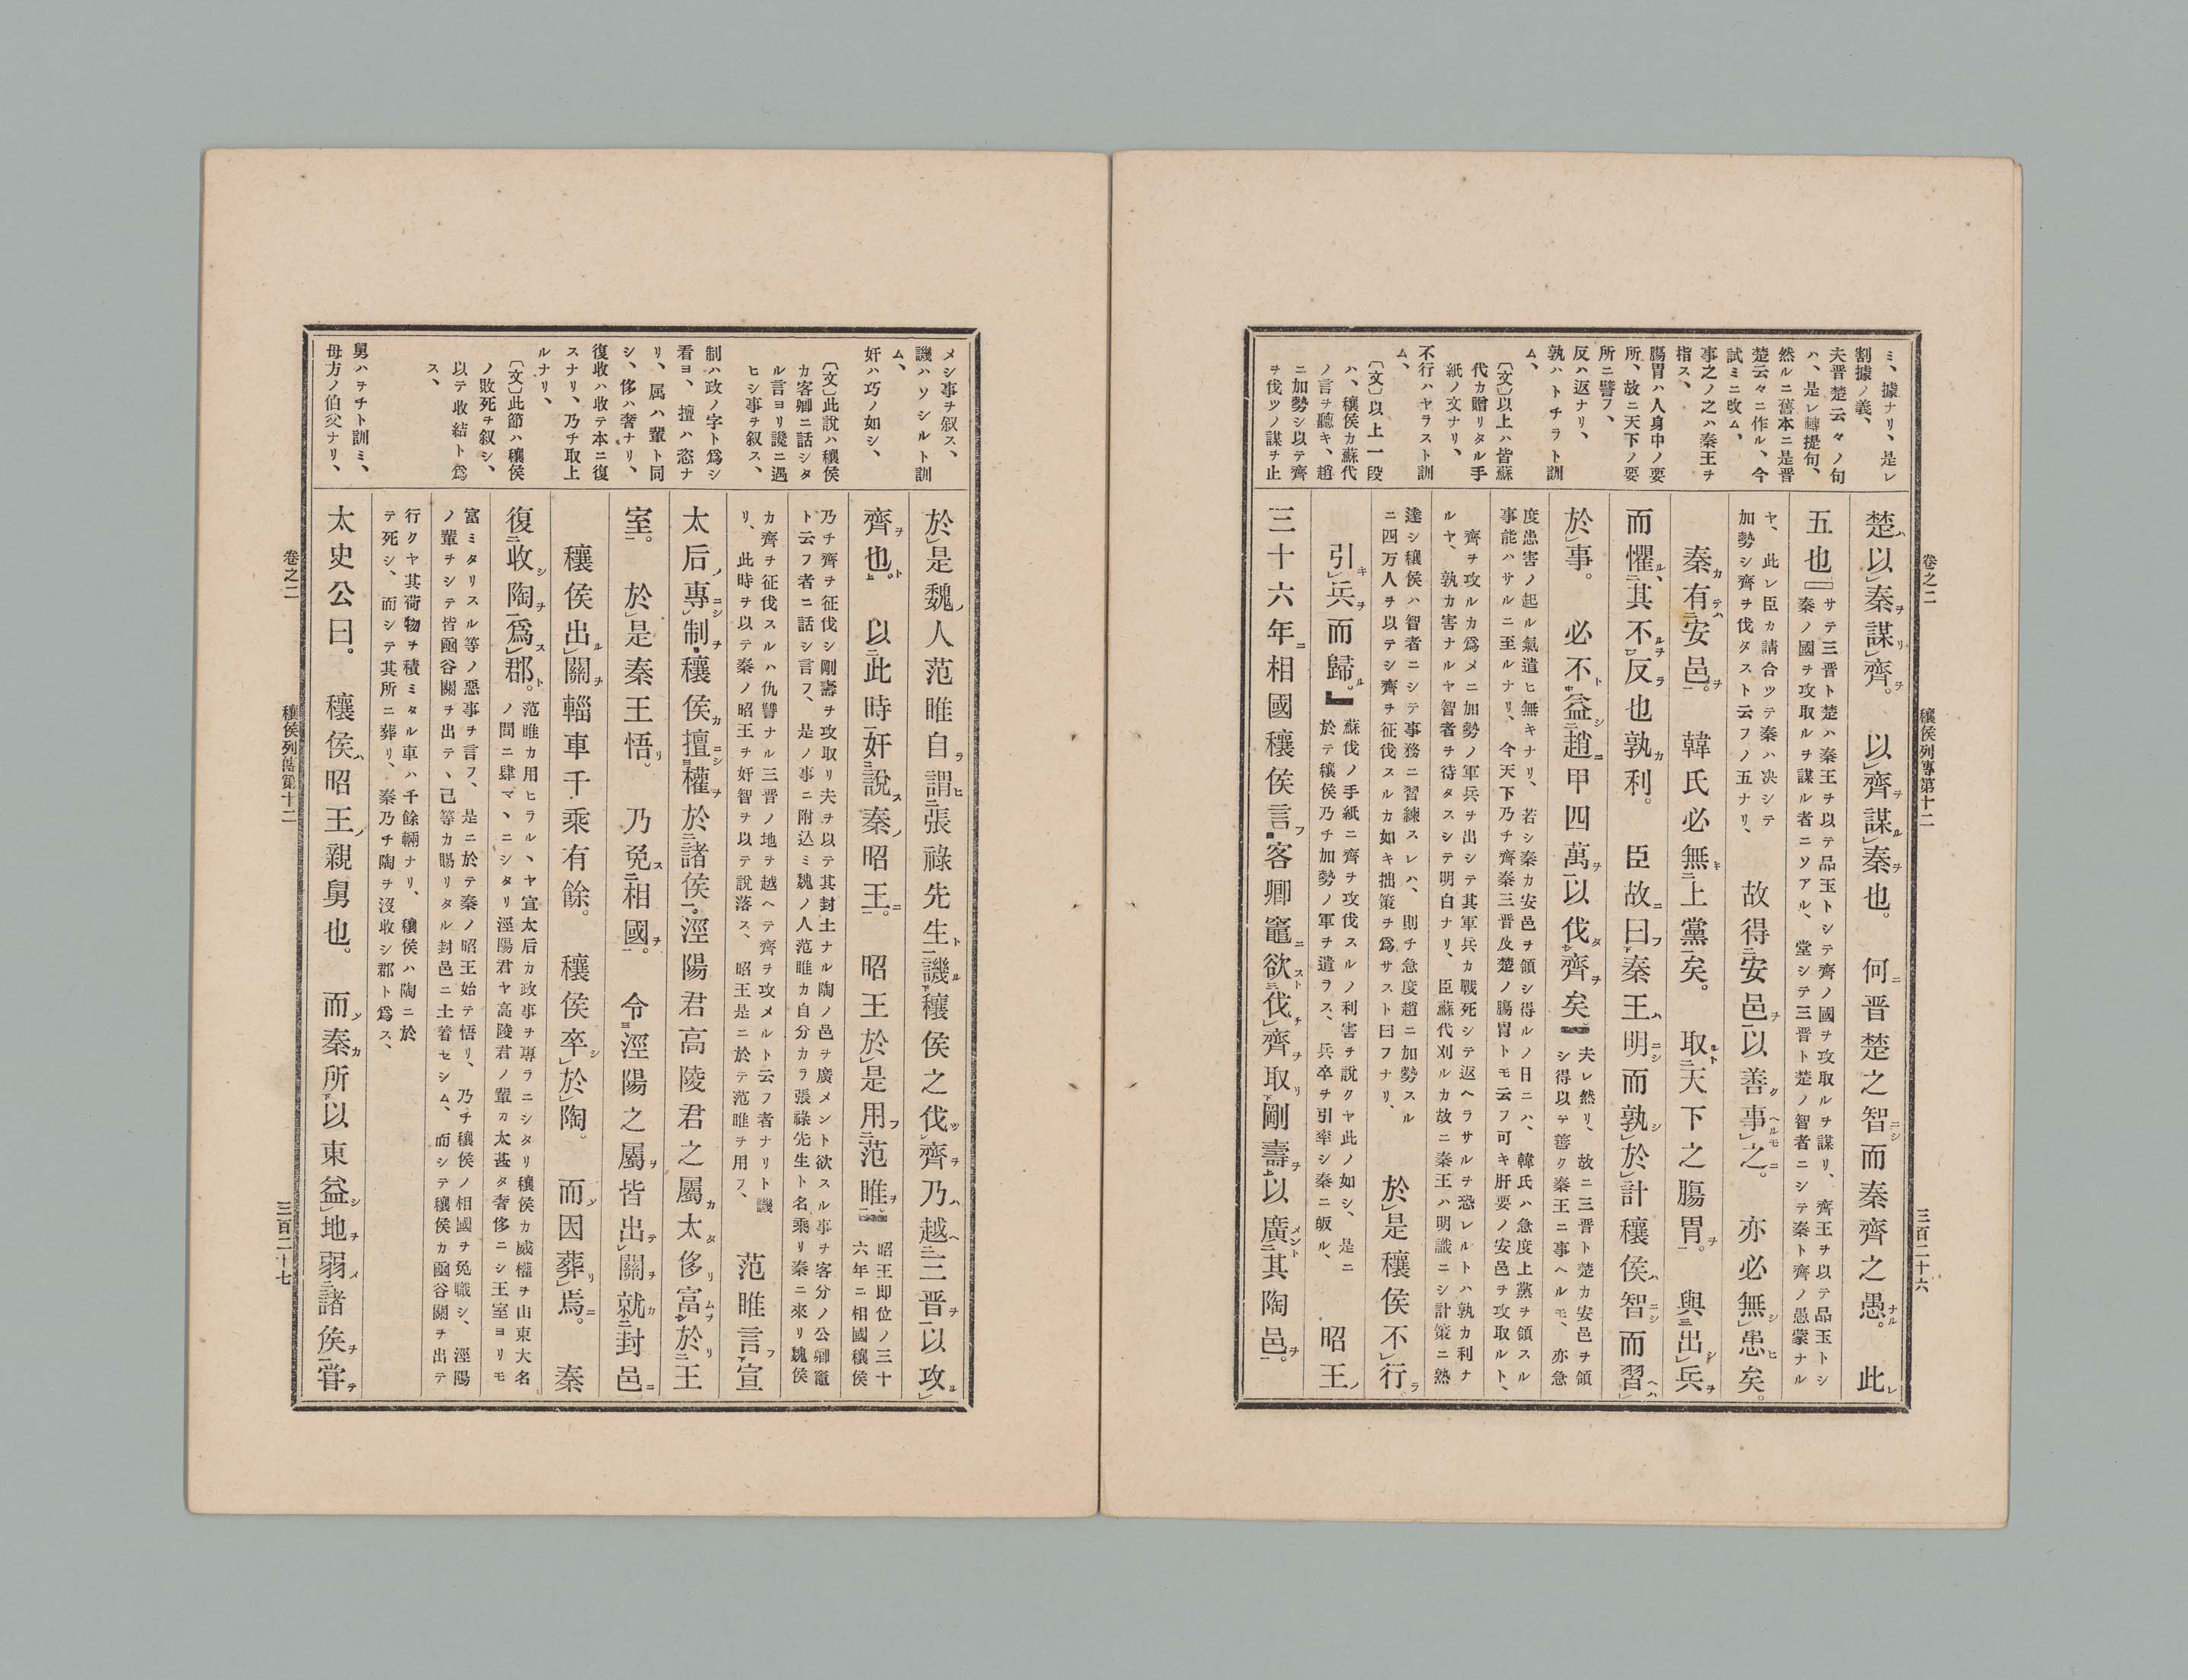 卷之二　穰侯列傳第十二　三百二十六
ミ、據ナリ、是レ
割據ノ義、
夫晋楚云々ノ句
ハ、是レ轉提句、
然ルニ舊本ニ是晋
楚云々ニ作ル、今
試ミニ改ム、
事之ノ之ハ秦王ヲ
指ス、
膓胃ハ人身中ノ要
所、故ニ天下ノ要
所ニ譬フ、
反ハ返ナリ、
孰ハトチラト訓
ム、
〔文〕以上ハ皆蘇
代カ贈リタル手
紙ノ文ナリ、
不行ハヤラスト訓
ム、
〔文〕以上一段
ハ、穰侯カ蘇代
ノ言ヲ聽キ、趙
ニ加勢シ以テ齊
ヲ伐ツノ謀ヲ止
楚以秦謀齊。以齊謀秦也。何晋楚之智而秦齊之愚。此
五也
サテ三晋ト楚ハ秦王ヲ以テ品玉トシテ齊ノ國ヲ攻取ルヲ謀リ、齊王ヲ以テ品玉トシ
秦ノ國ヲ攻取ルヲ謀ル者ニソアル、堂シテ三晋ト楚ノ智者ニシテ秦ト齊ノ愚蒙ナル
ヤ、此レ臣カ請合ツテ秦ハ决シテ
加勢シ齊ヲ伐タスト云フノ五ナリ、
故得安邑以善事之。亦必無患矣。
秦有安邑。韓氏必無上黨矣。取天下之膓胃。與出兵
而懼其不反也孰利。臣故曰秦王明而孰於計穰侯智而習
於事。必不益趙甲四萬以伐齊矣
夫レ然リ、故ニ三晋ト楚カ安邑ヲ領
シ得以テ善ク秦王ニ事ヘルモ、亦急
度患害ノ起ル氣遣ヒ無キナリ、若シ秦カ安邑ヲ領シ得ルノ日ニハ、韓氏ハ急度上黨ヲ領スル
事能ハサルニ至ルナリ、今天下乃チ齊秦三晋及楚ノ膓胃トモ云フ可キ肝要ノ安邑ヲ攻取ルト、
齊ヲ攻ルカ為メニ加勢ノ軍兵ヲ出シテ其軍兵カ戰死シテ返ヘラサルヲ恐レルトハ孰カ利ナ
ルヤ、孰カ害ナルヤ智者ヲ待タスシテ明白ナリ、臣蘇代刈ルカ故ニ秦王ハ明識ニシ計策ニ熟
達シ穰侯ハ智者ニシテ事務ニ習練スレハ、則チ急度趙ニ加勢スル
ニ四万人ヲ以テシ齊ヲ征伐スルカ如キ拙策ヲ爲サスト曰フナリ、
於是穰侯不行
引兵而歸。
蘇伐ノ手紙ニ齊ヲ攻伐スルノ利害ヲ說クヤ此ノ如シ、是ニ
於テ穰侯乃チ加勢ノ軍ヲ遣ラス、兵卒ヲ引率シ秦ニ皈ル、
昭王
三十六年相國穰侯言客卿竈欲伐齊取剛壽以廣其陶邑。
メシ事ヲ叙ス、
譏ハソシルト訓
ム、
奸ハ巧ノ如シ、
〔文〕此說ハ穰侯
カ客卿ニ話シタ
ル言ヨリ讒ニ遇
ヒシ事ヲ叙ス、
制ハ政ノ字ト爲シ
看ヨ、擅ハ恣ナ
リ、属ハ輩ト同
シ、侈ハ奢ナリ、
復收ハ收テ本ニ復
スナリ、乃チ取上
ルナリ、
〔文〕此節ハ穰侯
ノ敗死ヲ叙シ、
以テ收結ト爲
ス、
舅ハヲヂト訓ミ、
母方ノ伯父ナリ、
於是魏人范睢自謂張祿先生譏穰侯之伐齊乃越三晋以攻
齊也。以此時奸說秦昭王。昭王於是用范睢
昭王即位ノ三十
六年ニ相國穰侯
乃チ齊ヲ征伐シ剛壽ヲ攻取リ夫ヲ以テ其封土ナル陶ノ邑ヲ廣メント欲スル事ヲ客分ノ公卿竈
ト云フ者ニ話シ言フ、是ノ事ニ附込ミ魏ノ人范睢カ自分カラ張祿先生ト名乘リ秦ニ來リ魏侯
カ齊ヲ征伐スルハ仇讐ナル三晋ノ地ヲ越ヘテ齊ヲ攻メルト云フ者ナリト譏
リ、此時ヲ以テ秦ノ昭王ヲ奸智ヲ以テ說落ス、昭王是ニ於テ范睢ヲ用フ、
范睢言宣
太后專制穰侯擅權於諸侯。涇陽君高陵君之屬太侈富於王
室。於是秦王悟。乃免相國。令涇陽之屬皆出關就封邑。
穰侯出關輜車千乘有餘。穰侯卒於陶。而因葬焉。秦
復收陶爲郡。
范睢カ用ヒラルヽヤ宣太后カ政事ヲ專ラニシタリ穰侯カ威權ヲ山東大名
ノ間ニ肆マヽニシタリ涇陽君ヤ高陵君ノ輩カ太甚タ奢侈ニシ王室ヨリモ
富ミタリスル等ノ惡事ヲ言フ、是ニ於テ秦ノ昭王始テ悟リ、乃チ穰侯ノ相國ヲ免職シ、涇陽
ノ輩ヲシテ皆凾谷關ヲ出テヽ己等カ賜リタル封邑ニ土着セシム、而シテ穰侯カ凾谷關ヲ出テ
行クヤ其荷物ヲ積ミタル車ハ千餘輛ナリ、穰侯ハ陶ニ於
テ死シ、而シテ其所ニ葬リ、秦乃チ陶ヲ沒收シ郡ト爲ス、
太史公曰。穰侯昭王親舅也。而秦所以東益地弱諸侯嘗
卷之二　穰侯列傳第十二　三百二十七